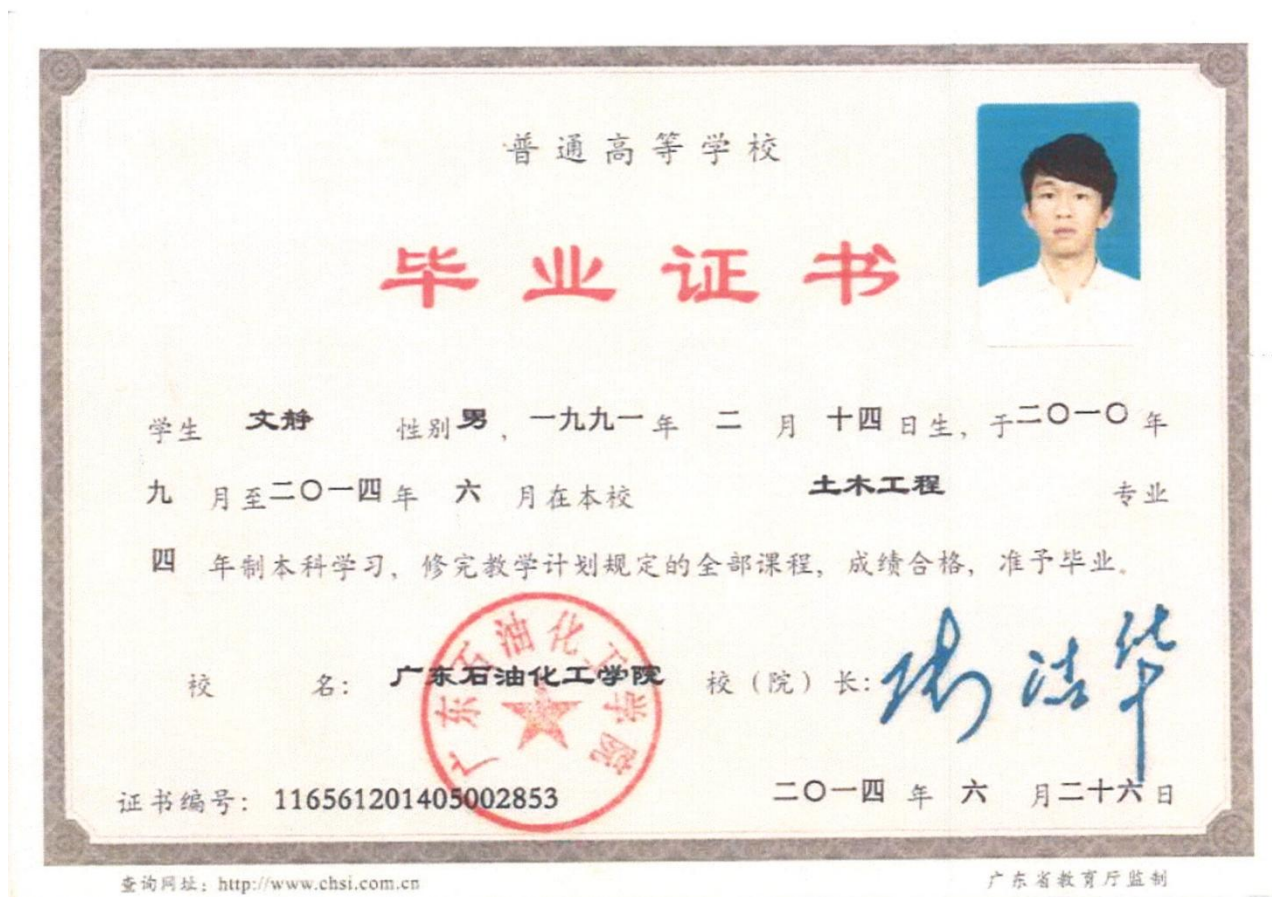 普通高等学校
毕业证书
学生 文静 性别 男 、一九九一 年 二 月 十四 日生，于 二〇一〇 年
九 月至 二〇一四 年 六 月在本校 土木工程 专业
四 年制本科学习，修完教学计划规定的全部课程，成绩合格，准予毕业。
校 名： 广东石油化工学院 校（院）长：
广东石油化工学院
证书编号： 116561201405002853 二〇一四 年 六 月 二十六 日
查询网址：http://www.chsi.com.cn 广东省教育厅监制